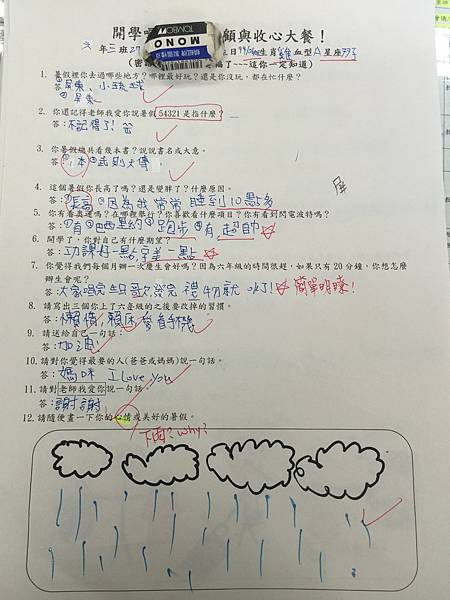 開學 顧與收心大餐!
TOMBO
MONO
年三班27 生肖雞血型A星座
1. 暑假裡你去過哪些地方?哪裡最好玩?還是你沒玩,都在忙什麼?
答:①屏東、小琉球
②屏東
2. 你還記得老師我愛你說暑假54321是指什麼?
答:不記得了!
3. 你暑假總共看幾本書?說說書名或大意。
答:①1本②武則天傳
4. 這個暑假你長高了嗎?還是變胖了?什麼原因。
答:①長高②因為我常常睡到10點多
屏
5. 你有看奧運嗎?在哪裡舉行?你喜歡看什麼項目?你有看到閃電波特嗎?
答:①有②西里約③跑步④有,超帥☆
6. 開學了,你對自己有什麼期望?
答:功課好一點,完美一點☆
7. 你覺得我們每個月辦一次慶生會好嗎?因為六年級的時間很趕,如果只有20分鐘,你想怎麼
辦生會呢?
答:大家唱完生日歌發完禮物就 ☆簡單明瞭!
8. 請寫出三個你上了六年級的之後要改掉的習慣。
答:懶惰,賴床,愛看手機
9. 請送給自己一句話:
答:加油!
10. 請對你覺得最要的人(爸爸或媽媽)說一句話。
答:媽咪 I love you
11. 請對老師我愛你說一句話。
答:謝謝
12. 請隨便畫一下你的心情或美好的暑假。
下雨?why?